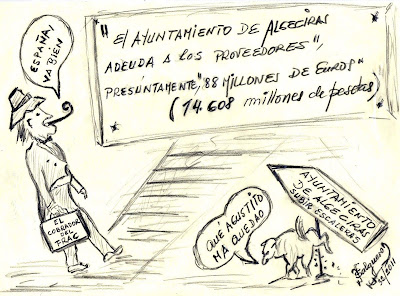 ESPAÑA,
VA BIEN
"El AYUNTAMIENTO DE ALGECIRAS
ADEUDA A LOS PROVEEDORES",
PRESUNTAMENTE,"88 MILLONES DE EUROS"
(14.608 millones de pesetas)
EL
COBRADOR
DEL
FRAC
QUÉ AGUSTITO
MA QUEDAO
AYUNTAMIENTO
DE ALGECIRAS
SUBIR ESCALERAS